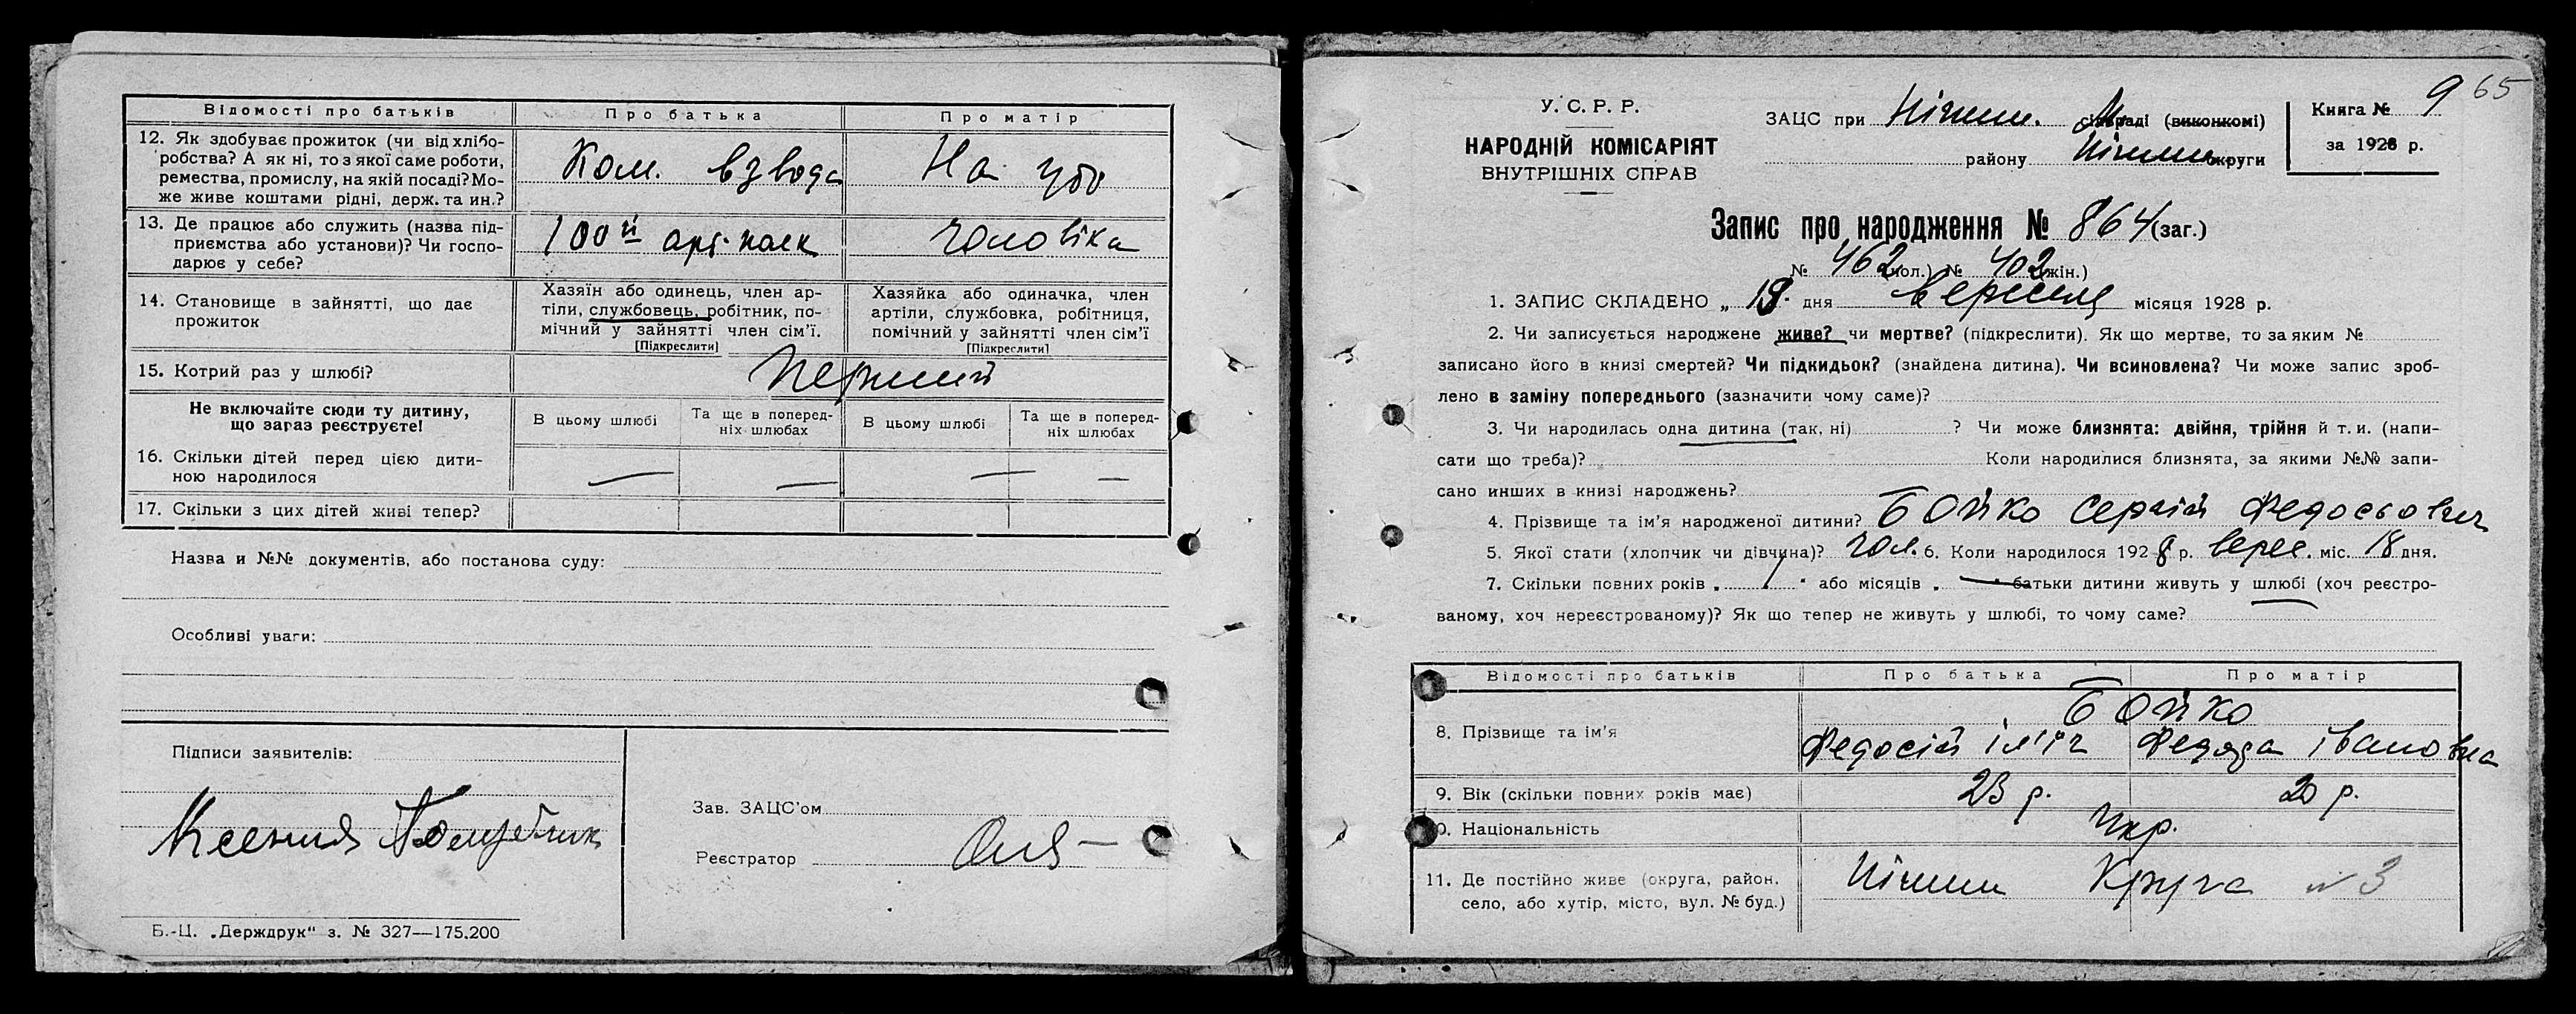 Відомості про батьків Про батька Про матір
12. Як здобуває прожиток (чи від хлібо-
робства? А як ні, то з якої саме роботи,
ремества, промислу, на якій посаді? Мо-
же живе коштами рідні, держ. та ин.?
Ком. взвода На утр
13. Де працює або служить (назва під-
приємства або установи)? Чи госпо-
дарює у себе?
100й арт. полк чоловіка
14. Становище в зайнятті, що дає
прожиток
Хазяїн або одинець, член ар-
тіли, службовець, робітник, по-
мічний у зайнятті член сім'ї.
[Підкреслити]
Хазяйка або одиначка, член
артіли, службовка, робітниця,
помічний у зайнятті член сім'ї
[Підкреслити]
15. Котрий раз у шлюбі? перший
Не включайте сюди ту дитину,
що зараз реєструєте!
В цьому шлюбі Та ще в поперед-
ніх шлюбах В цьому шлюбі Та ще в поперед-
ніх шлюбах
16. Скільки дітей перед цією дити-
ною народилося — — — —
17. Скільки з цих дітей живі тепер?
Назва и №№ документів, або постанова суду:
Особливі уваги:
Підписи заявителів:
Ксения
Зав. ЗАЦС'ом
Реєстратор
Б.-Ц. „Держдрук" з. № 327—175.200
У. С. Р. Р.
НАРОДНІЙ КОМІСАРІЯТ
ВНУТРІШНІХ СПРАВ
ЗАЦС при Ніжин. М. сільраді (виконкомі)
району Ніжин округи
Книга № 9 65
за 1928 р.
Запис про народження № 864 (заг.)
№ 462 (чол.) № 402 (жін.)
1. ЗАПИС СКЛАДЕНО „ 19. дня вересня місяця 1928 р.
2. Чи записується народжене живе? чи мертве? (підкреслити). Як що мертве, то за яким №
записано його в книзі смертей? Чи підкидьок? (знайдена дитина). Чи всиновлена? Чи може запис зроб-
лено в заміну попереднього (зазначити чому саме)?
3. Чи народилась одна дитина (так, ні) ? Чи може близнята: двійня, трійня й т. и. (напи-
сати що треба)? Коли народилися близнята, за якими №№ запи-
сано инших в книзі народжень?
4. Прізвище та ім'я народженої дитини? Бойко Сергій Федосьович
5. Якої стати (хлопчик чи дівчина)? чол. 6. Коли народилося 1928 р. верес. міс. 18 дня.
7. Скільки повних років „ 1 " або місяців „ — " батьки дитини живуть у шлюбі (хоч реєстро-
ваному, хоч нереєстрованому)? Як що тепер не живуть у шлюбі, то чому саме?
Відомості про батьків Про батька Про матір
Бойко
8. Прізвище та ім'я Федосій Іл'іч Івановна
9. Вік (скільки повних років має) 23 р. 20 р.
10. Національність Укр.
11. Де постійно живе (округа, район.
село, або хутір, місто, вул. № буд.)
Ніжин Круча № 3